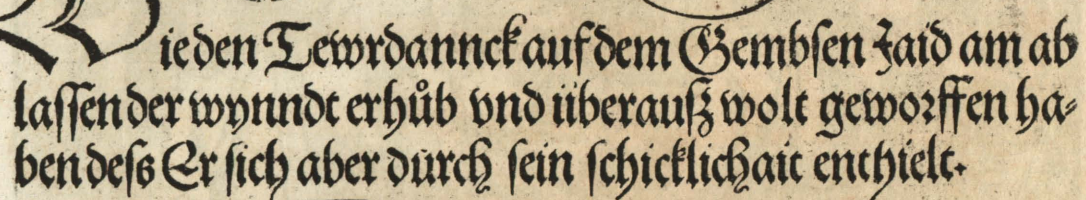 Wie den Tewrdannck auf dem Gembsen Jaid am ab
lassen der wynndt erhůb vnd überausz wolt geworffen ha⸗
ben dess Er sich aber durch sein schicklichait enthielt.